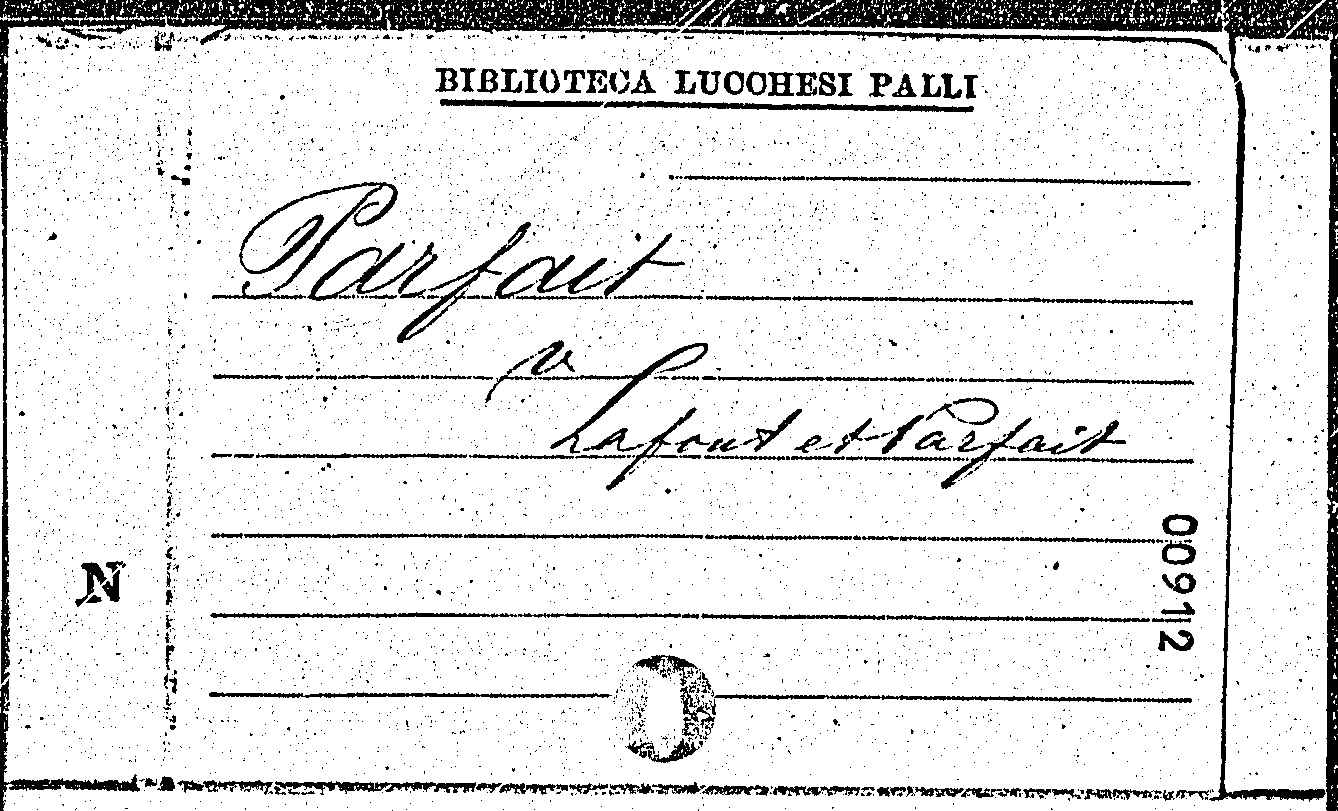 BIBLIOTECA LUCCHESI PALLI
Parfait
v
Lafont et Parfait
00912
N